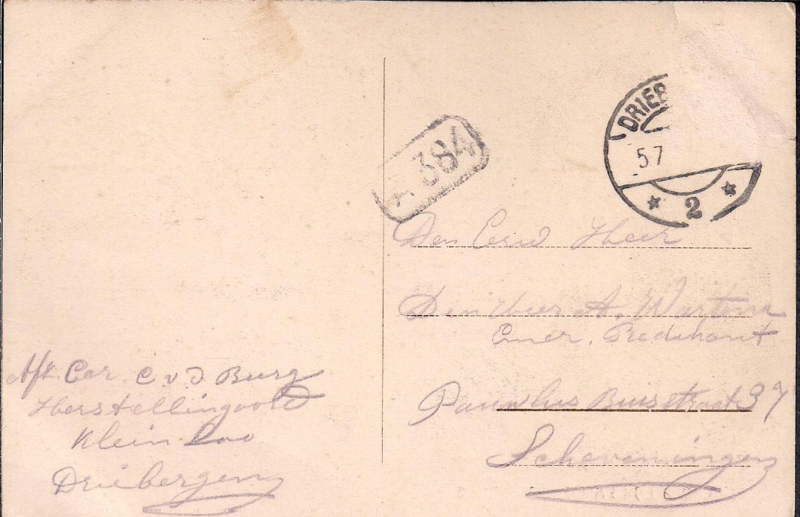 DRIEB
5.7
2
A 384
Den Eerw Heer
Den Heer A.
Emer. Predikant
Paulus Buisstraat 37
Scheveningen
Afz. Cor. C v d Burg
Klein Loo
Driebergen